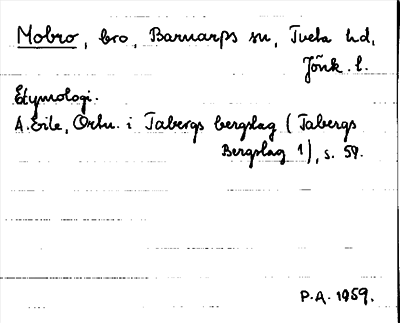 Mobro, bro, Barnarps sn, Tveta hd,
Jönk. l.
Etymologi.
A. Eile, Ortn. i Tabergs bergslag (Tabergs
Bergslag 1), s. 59.
P.A. 1959.